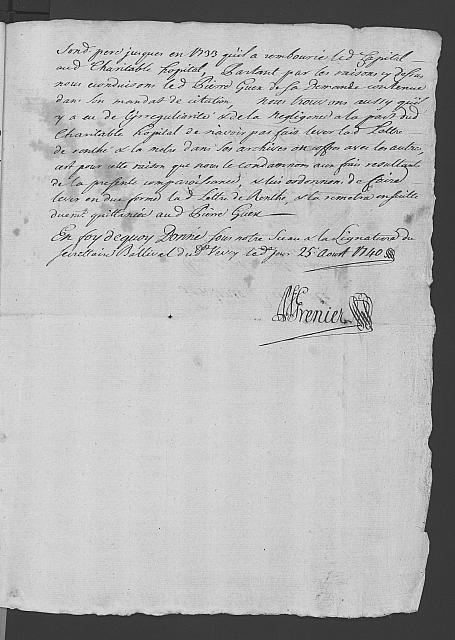 Sond. pere jusques en 1733 qu'il a rembourse led Capital
aud Charitable hopital, Partant par les raisons cy dessus
nous econduisons led Pierre Guex de sa Demande contenue
dans son mandat de citation, nous trouvons aussy qu'il
y a eu de l'irregularité & de la Negligence a la part dud
Charitable hopital de n'avoir pas fait lever lad Lettre
de renthe & la mettre dans ses archives en offre avec les autres,
c'est pour cette raison que nous le condamnons aux frais resultants
de la presente comparoissance, & lui ordonnons de faire
lever en due forme lad Lettre de Renthe, & la remettre ensuitte
duement quittancée aud Pierre Guex
En foy de quoy Donné sous notre sceau & la Signature du
secretaire Ballival dud Vevey led jour 25 Aoust 1740
Grenier